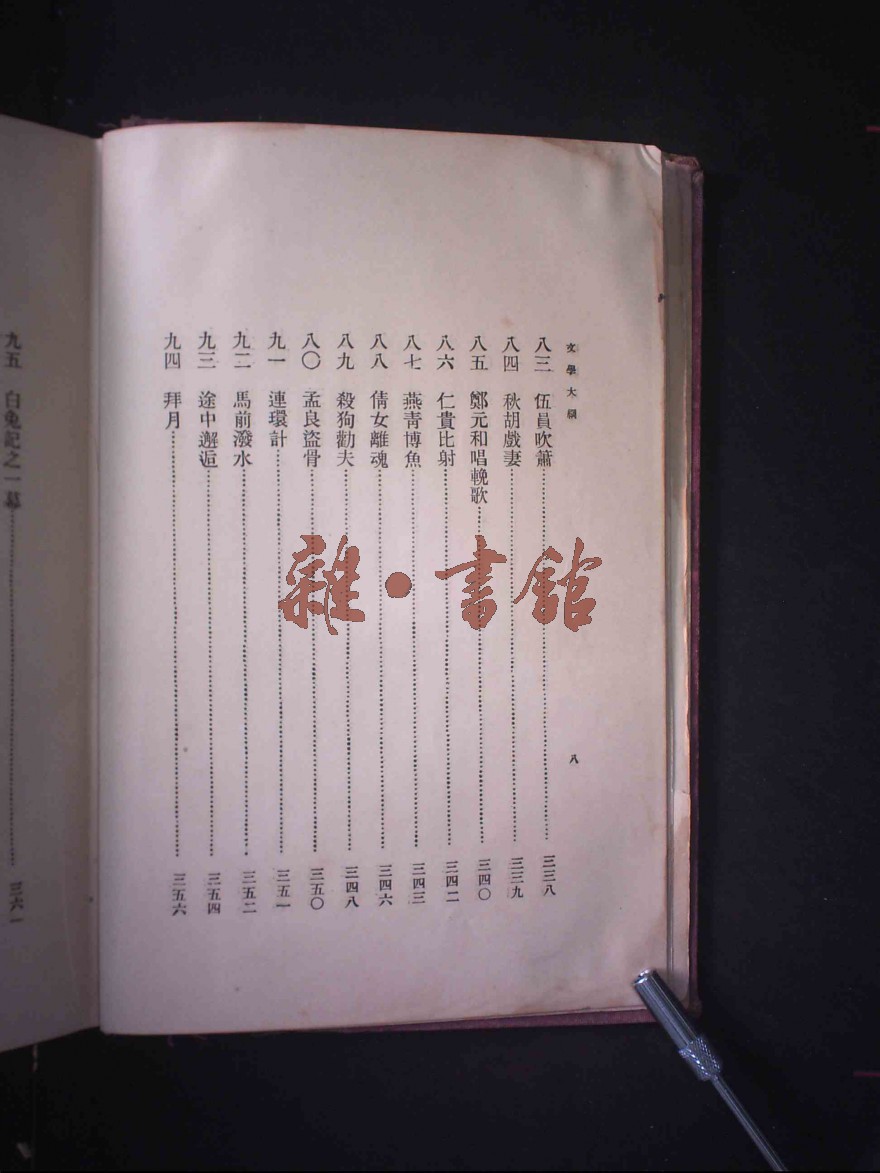 文學大綱
八
八三 伍員吹簫 三三八
八四 秋胡戲妻 三三九
八五 鄭元和唱輓歌 三四〇
八六 仁貴比射 三四二
八七 燕青博魚 三四三
八八 倩女離魂 三四六
八九 殺狗勸夫 三四八
八〇 孟良盜骨 三五〇
九一 連環計 三五一
九二 馬前潑水 三五二
九三 途中邂逅 三五四
九四 拜月 三五六
九五 白兔記之一幕 三六一
雜·書館